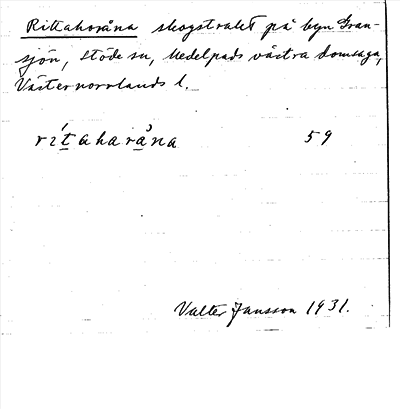 Rittahoråna skogstrakt på byn Gran-
sjön, Stöde sn, Medelpads västra domsaga,
Västernorrlands l.
rítaharåna 59
Valter Jansson 1931.